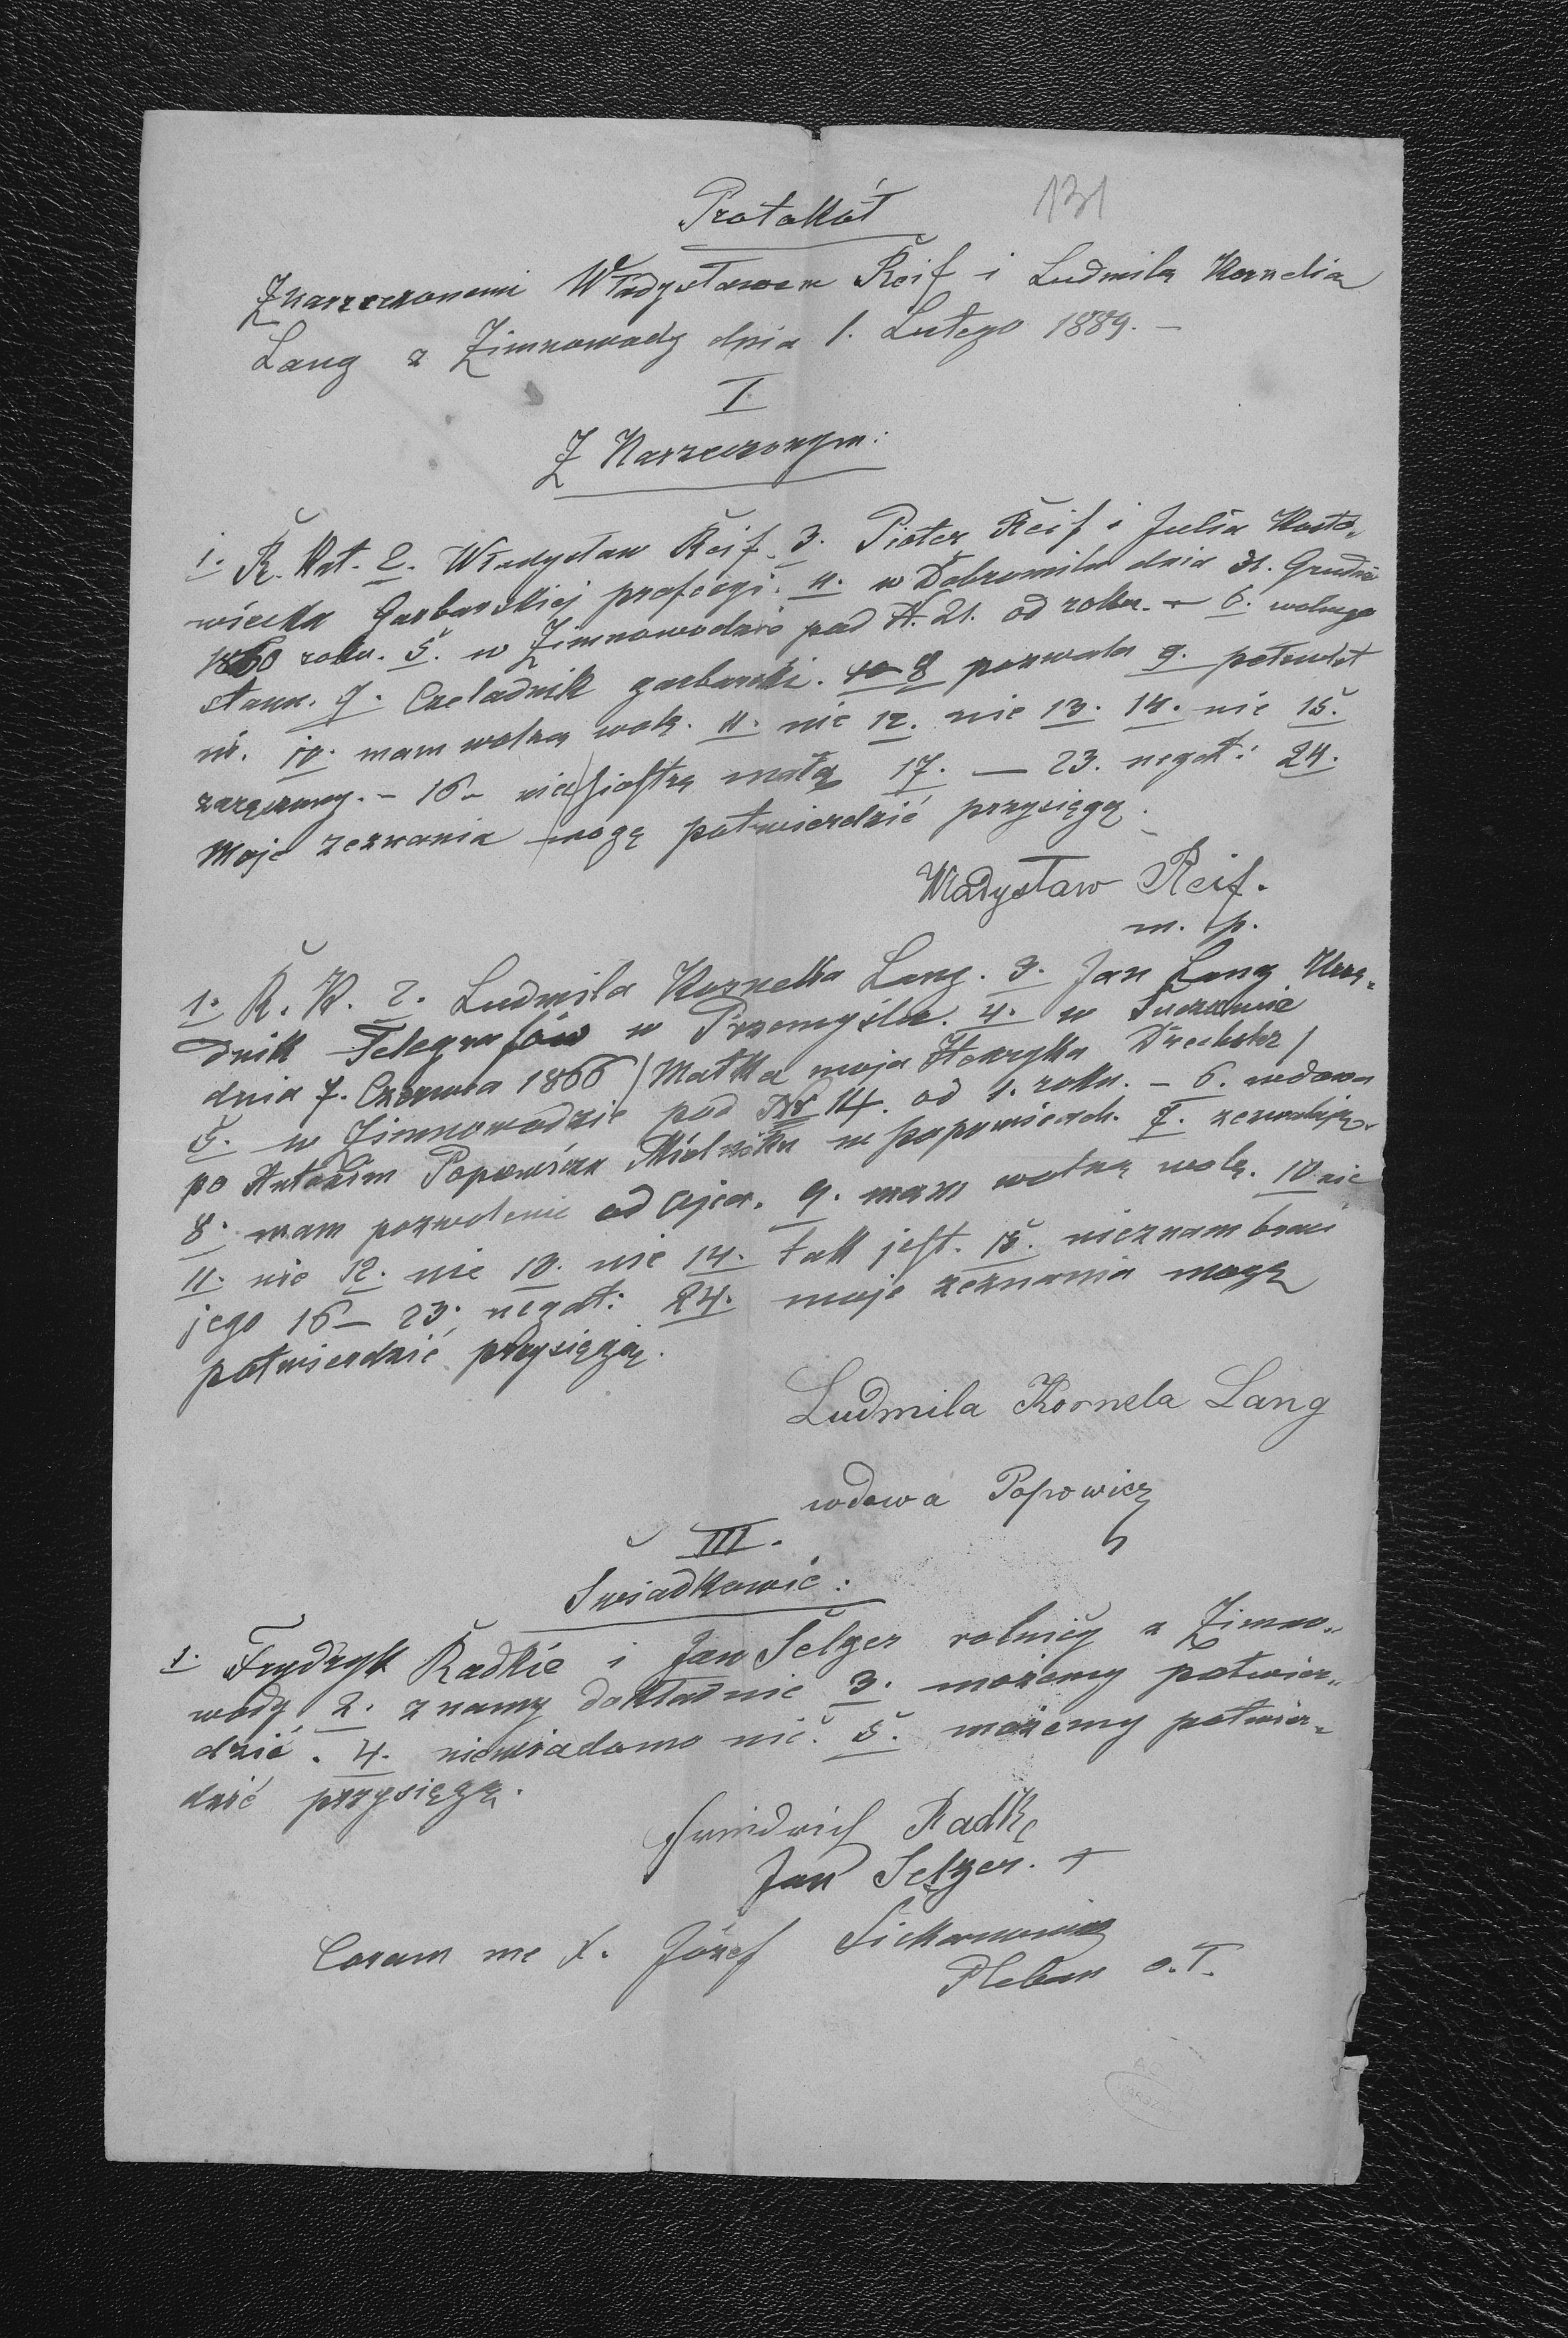 Protokół
131
Z Narzeczonemi Władysławem Reif i Ludmilą Kornelią
Lang z Zimnowody dnia 1. Lutego 1889. –
I
Z Narzeczonym:
1. R. Kat. 2. Władysław Reif. 3. Piotr Reif i Julia
wiecka Garbarskiej profesyi. 4. w Dobromilu dnia 31. Grudnia
1860 roku. 5. w Zimnowodzie pod N. 21. od roku. – 6. wolnego
stanu. 7. Czeladnik garbarski. 8 pozwala 9.
10. mam wolną wolę. 11. nie 12. nie 13. 14. nie 15.
zaręczony. – 16 – nie siostrę małą 17. — 23. negat: 24.
Moje zeznania mogę potwierdzić przysięgą.
Władysław Reif.
m. p.
1. R. K. 2. Ludmila Kornelia Lang. 3. Jan Lang Urzę„
dnik Telegrafów w Przemyślu. 4. w Suczawie
dnia 7. Czerwca 1866 / Matka moja Henryka Drechsler /
5. w Zimnowodzie pod Nr 14. od 1. roku. – 6. wdowa
po Antonim Popowiczu Mielniku w Popowicach. 7. zezwalają
8. mam pozwolenie od Ojca. 9. mam wolną wolę. 10 nie
11. nie 12. nie 13. nie 14. tak jest. 15. nieznam braci
jego 16 – 23. negat: 24. moje zeznania mogę
potwierdzić przysięgą.
Ludmila Kornela Lang
wdowa Popowicz
III.
Świadkowie:
1. Frydryk Radkie i Jan Selzer rolnicy z Zimno„
wody 2. znamy dokładnie 3. możemy potwier„
dzić. 4. niewiadomo nic. 5. możemy potwier„
dzić przysięgą.
Friedrich Radke
Jan Selzer. +
Coram me X. Józef
Pleban o. ł.